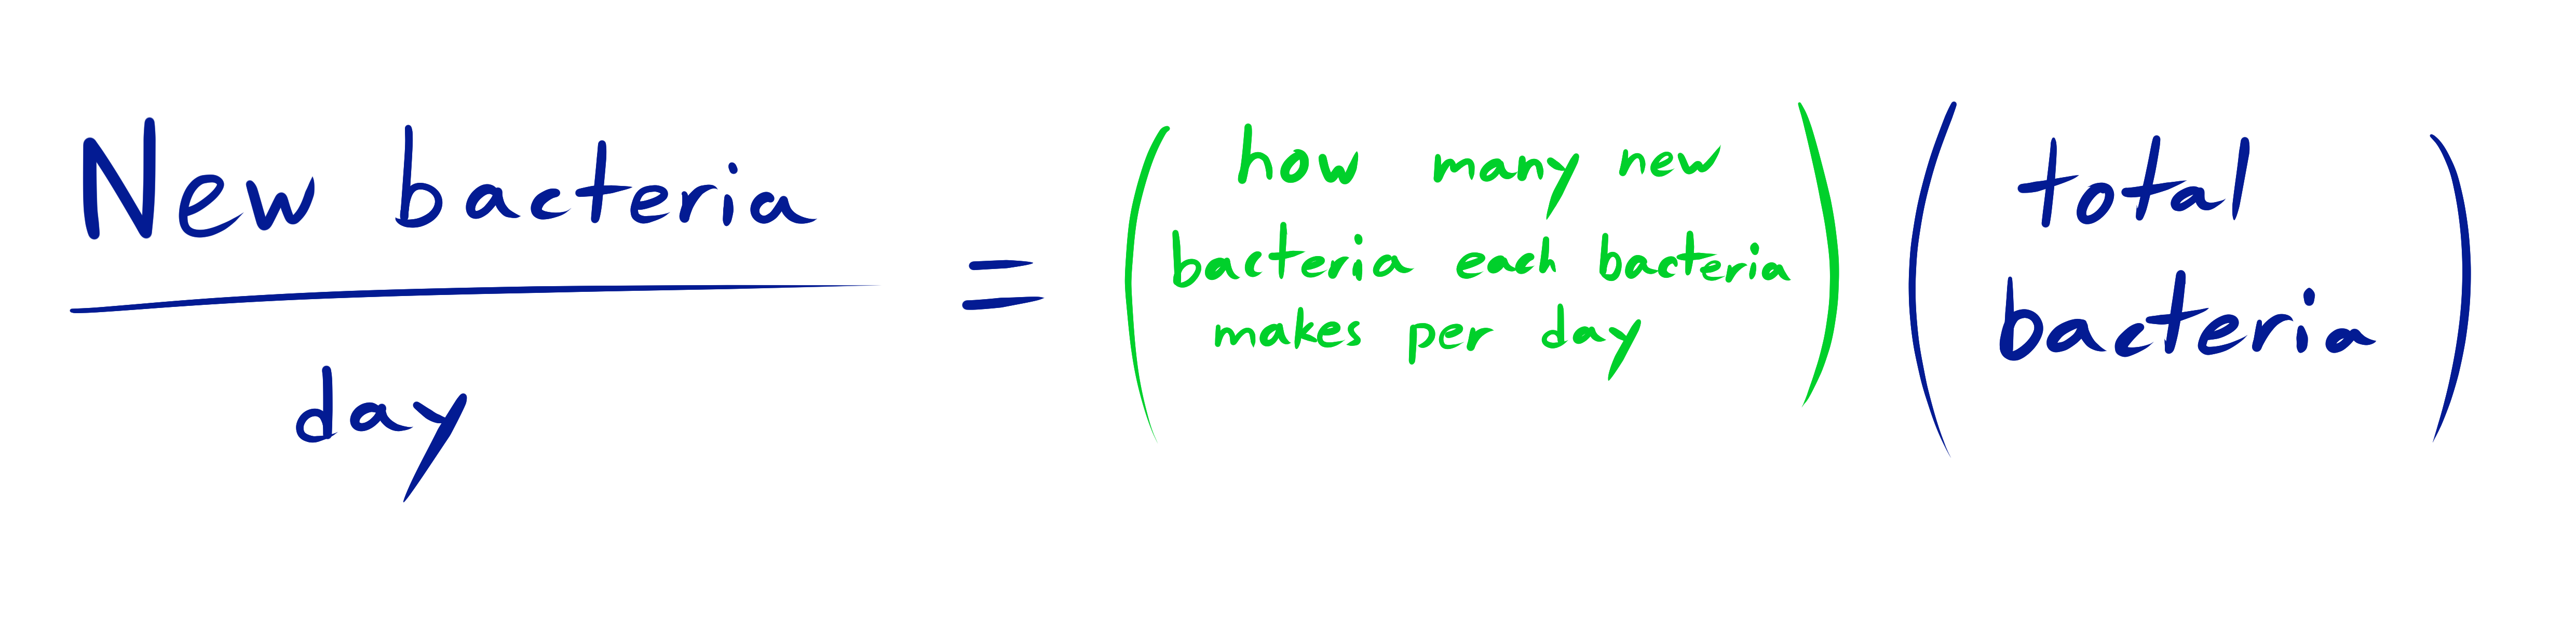 New bacteria
day
=
( how many new
bacteria each bacteria
makes per day )
( total
bacteria )